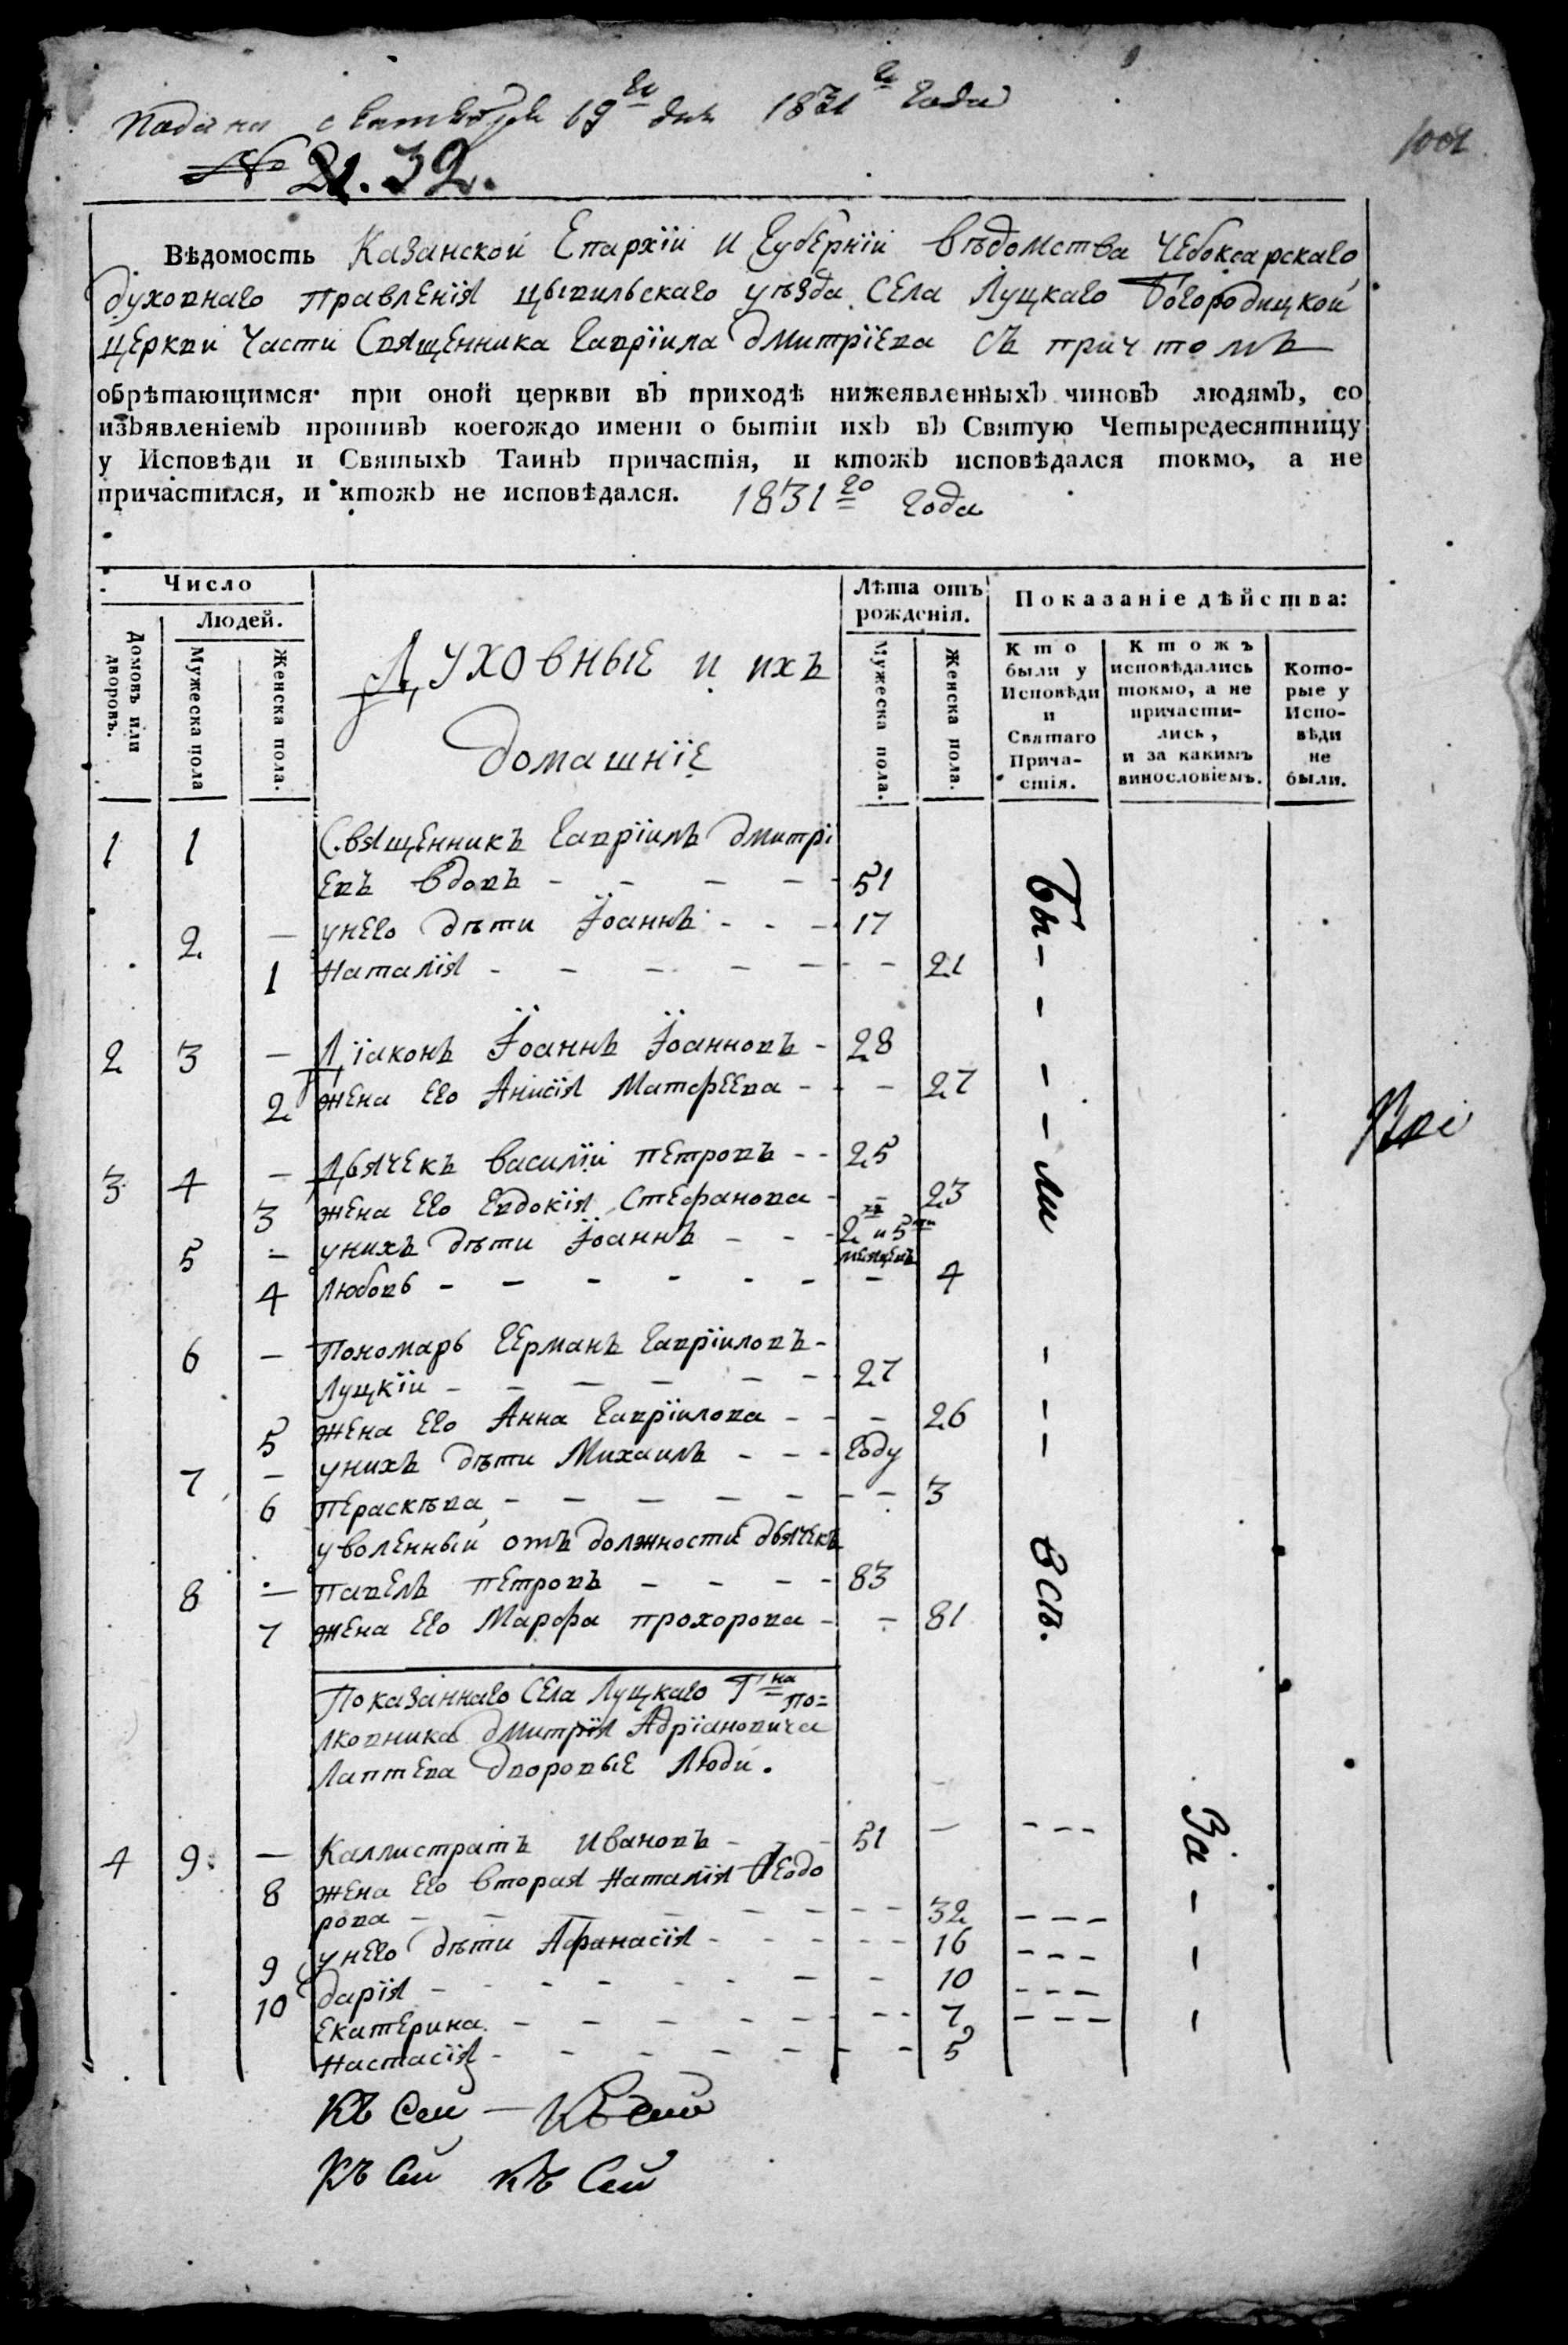 Подана октября 19го дня 1831го года
№ 21. 32.
Вѣдомость Казанской Епархїи и Губернїи вѣдомства Чебоксарскаго
духовнаго правленїя цывильскаго уѣзда Села Луцкаго Богородицкой
церкви Части Священника Гаврїила Дмитрїева съ причтомъ
обрѣтающимся при оной церкви въ приходѣ нижеявленныхъ чиновъ людямъ, со
изъявленіемъ противъ коегождо имени о бытіи ихъ въ Святую Четыредесятницу
у Исповѣди и Святыхъ Таинъ причастія, и ктожъ исповѣдался токмо, а не
причастился, и ктожъ не исповѣдался. 1831го года
Число
Людей.
Домовъ или дворовъ.
Мужеска пола
Женска пола.
Духовные и ихъ
домашнїе
Лѣта отъ рожденія.
Мужеска пола.
Женска пола.
Показаніе дѣйства:
Кто были у Исповѣди и Святаго Прича-стія.
Ктожъ исповѣдались токмо, а не причасти-лись, и за какимъ винословіемъ.
Кото-рые у Испо-вѣди не были.
1 1 Священникъ Гаврїилъ Дмитрї
евъ вдовъ - - - - 51
2 — унего дѣти Їоаннъ - - - 17
1 Наталїя - - - - - - - 21
2 3 — Дїаконъ Їоаннъ Їоанновъ - 28
2 жена его Анисїя Матфеева - - - 27
3 4 — Дьячекъ Василїй петровъ - - 25
3 жена его Евдокїя Стефанова - - 23
5 — унихъ дѣти Їоаннъ - - - 2хъ и 5ти
месяцевъ
4 Любовь - - - - - - - 4
6 — Пономарь Германъ Гаврїиловъ -
Луцкїй - - - - - - 27
5 жена его Анна Гаврїилова - - - 26
7 — унихъ дѣти Михаилъ - - - Году
6 Пераскѣва - - - - - - - 3
уволенный отъ должности дьячекъ
8 — Павелъ петровъ - - - - 83
7 жена его Марфа прохорова - - 81
Бы - - - - ли - - - всѣ.
Показаннаго Села Луцкаго Гна По=
лковника Дмитрїя Адрїановича
Лаптева дворовые Люди.
4 9 — Каллистратъ Ивановъ - - 51 — - - -
8 жена его вторая Наталїя Ѳеодо
рова - - - - - - - - 32 - - -
9 унего дѣти Афанасїя - - - - - 16 - - -
10 дарїя - - - - - - - 10 - - -
Екатерина - - - - - - - 7 - - -
Настасїя - - - - - - - - 5
За - - -
Къ Сей — Къ сей
Къ Сей Къ Сей